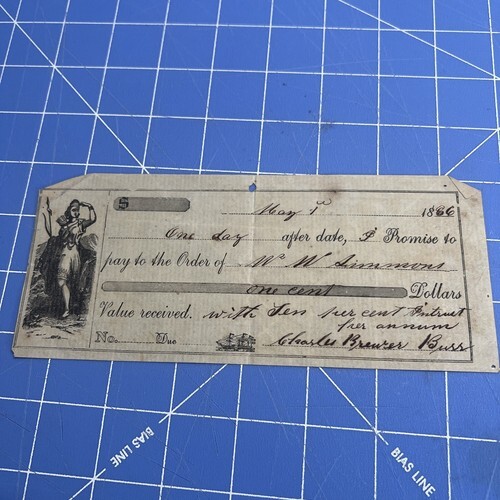 $
May 1st 1866
One day after date, I Promise to
pay to the Order of Wm W Simmons
One cent Dollars
Value received. with Ten per cent Intrust
per annum
No. Due Charles Brewzer Buss
BIAS LINE
BIAS LINE